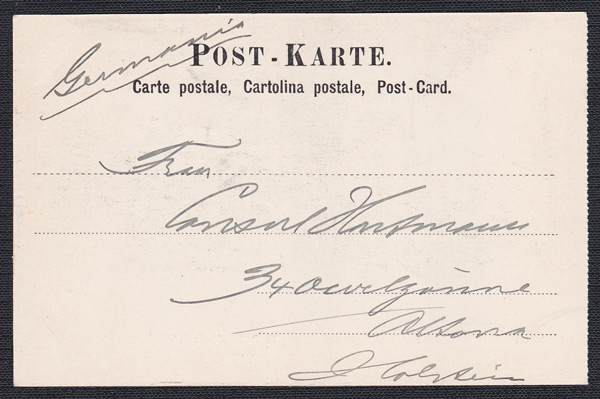 Germania
POST-KARTE.
Carte postale, Cartolina postale, Post-Card.
Frau
Consul
34 Oevelgönne
Altona
Holstein